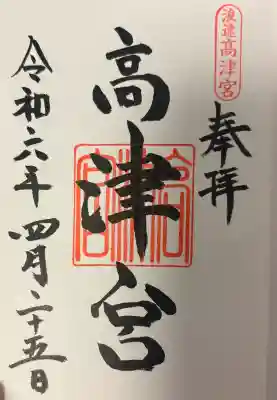 浪速高津宮
奉拝
高津宮
令和六年四月二十五日